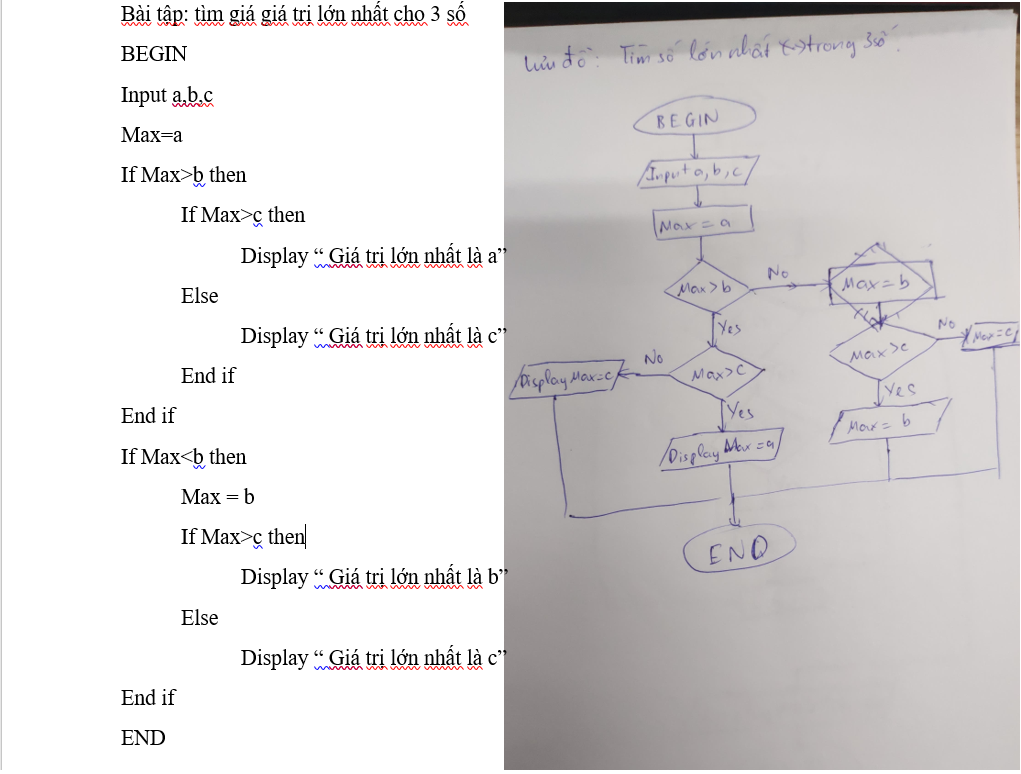 Bài tập: tìm giá giá trị lớn nhất cho 3 số
BEGIN
Input a,b,c
Max=a
If Max>b then
If Max>c then
Display “ Giá trị lớn nhất là a”
Else
Display “ Giá trị lớn nhất là c”
End if
End if
If Max<b then
Max = b
If Max>c then
Display “ Giá trị lớn nhất là b”
Else
Display “ Giá trị lớn nhất là c”
End if
END
Lưu đồ: Tìm số lớn nhất trong 3 số.
BEGIN
Input a, b, c
Max = a
Max > b
No
Max = b
Yes
Max > c
No
Max = c
Display Max = c
No
Max > c
Yes
Max = b
Yes
Display Max = a
END